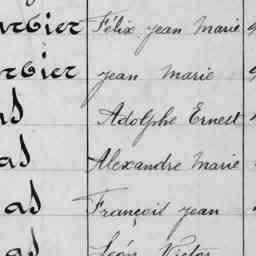 Félix Jean Marie
Jean Marie
Adolphe Ernest
as Alexandre Marie
as François Jean
as Léon Victor